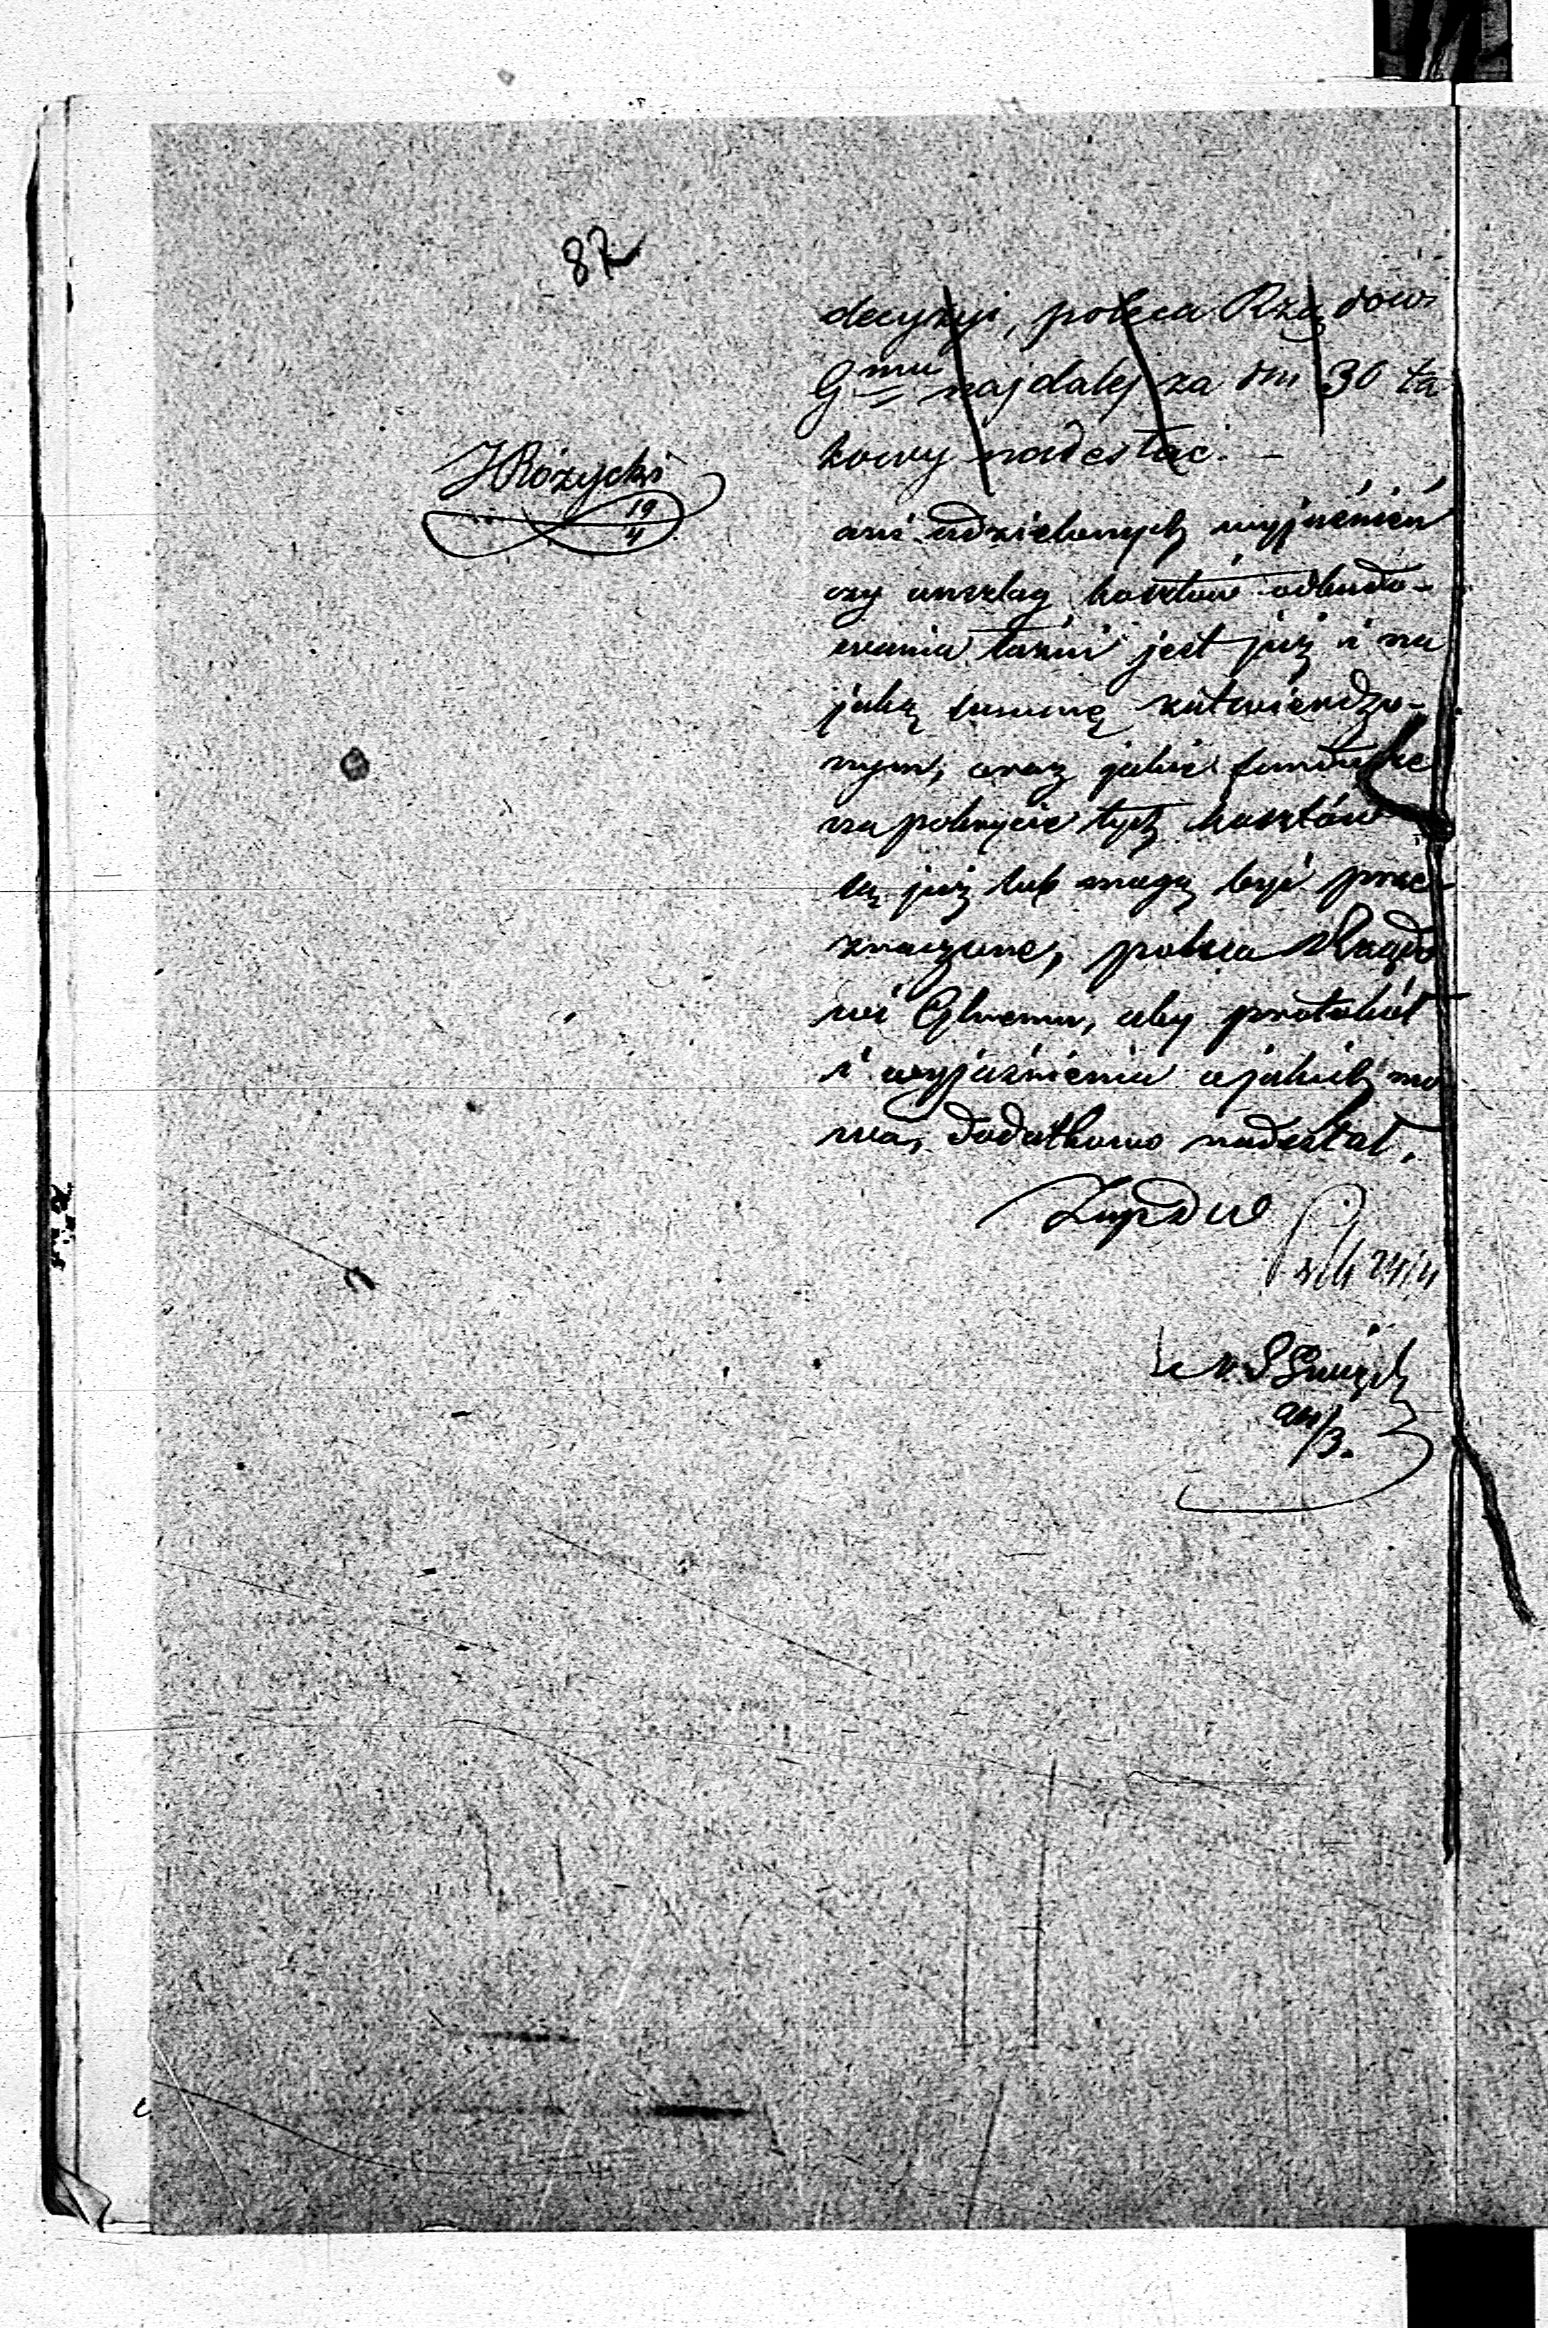 82
decyzyi, poleca Rządowi
Gmu najdalej za dni 30 ta
kowy nadesłać. —
HRóżycki
19
4
ani udzielonych wyjaśnień
czy anszlag kosztów odbudo-
wania łaźni jest już i na
jaką summę zatwierdzo-
nym, oraz jakie fundusze
na pokrycie tych kosztów
są już lub mogą być prze
znaczone, poleca Rządo
wi Gbnemu, aby protokół
i wyjaśnienia o jakich mo
wa, dodatkowo nadesłał.
24/4
24/3.